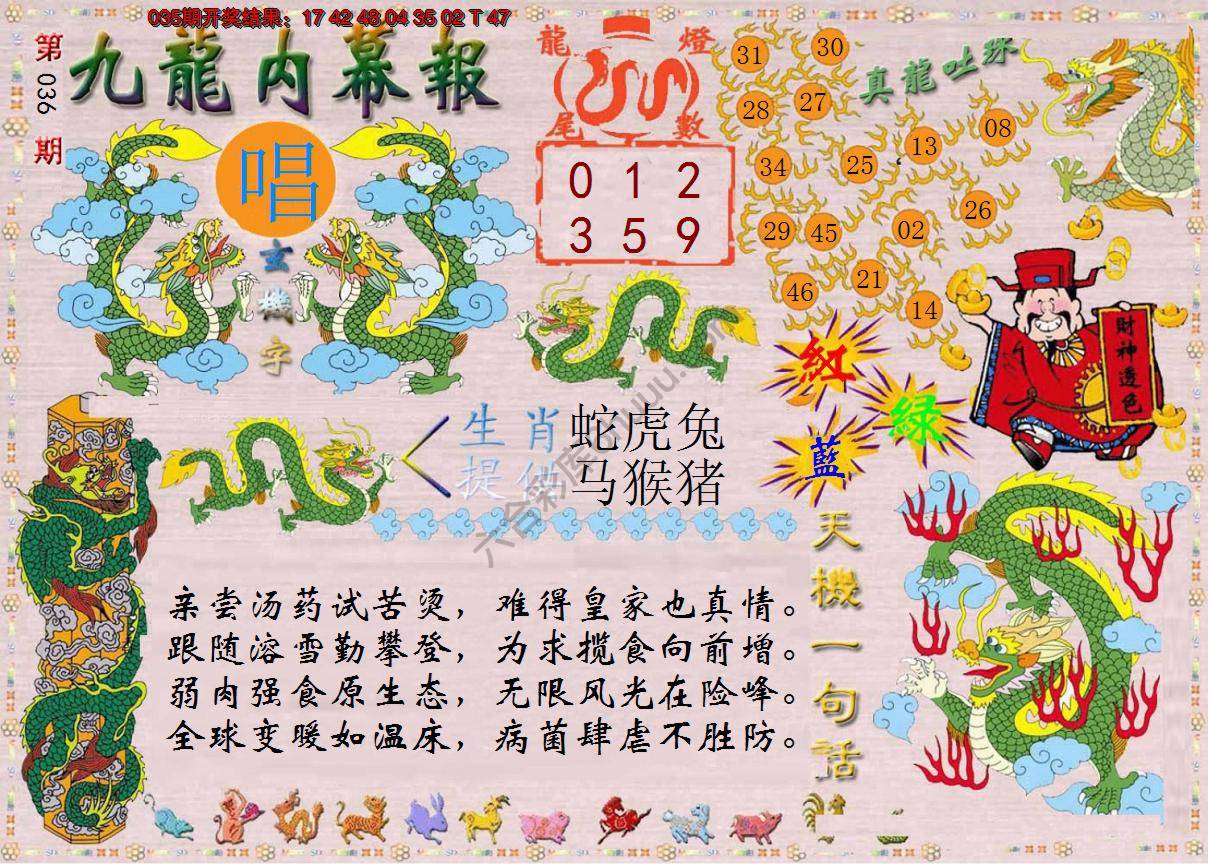 035期开奖结果：17 42 48 04 35 02 T 47
第036期
九龍内幕報
唱
玄機字
龍燈
尾數
0 1 2
3 5 9
真龍吐珠
31 30
28 27
34 25 13 08
29 45 02 26
46 21 14
財神透色
紅
綠
藍
生肖 蛇虎兔
提供 马猴猪
天機一句話
亲尝汤药试苦烫，难得皇家也真情。
跟随溶雪勤攀登，为求揽食向前增。
弱肉强食原生态，无限风光在险峰。
全球变暖如温床，病菌肆虐不胜防。